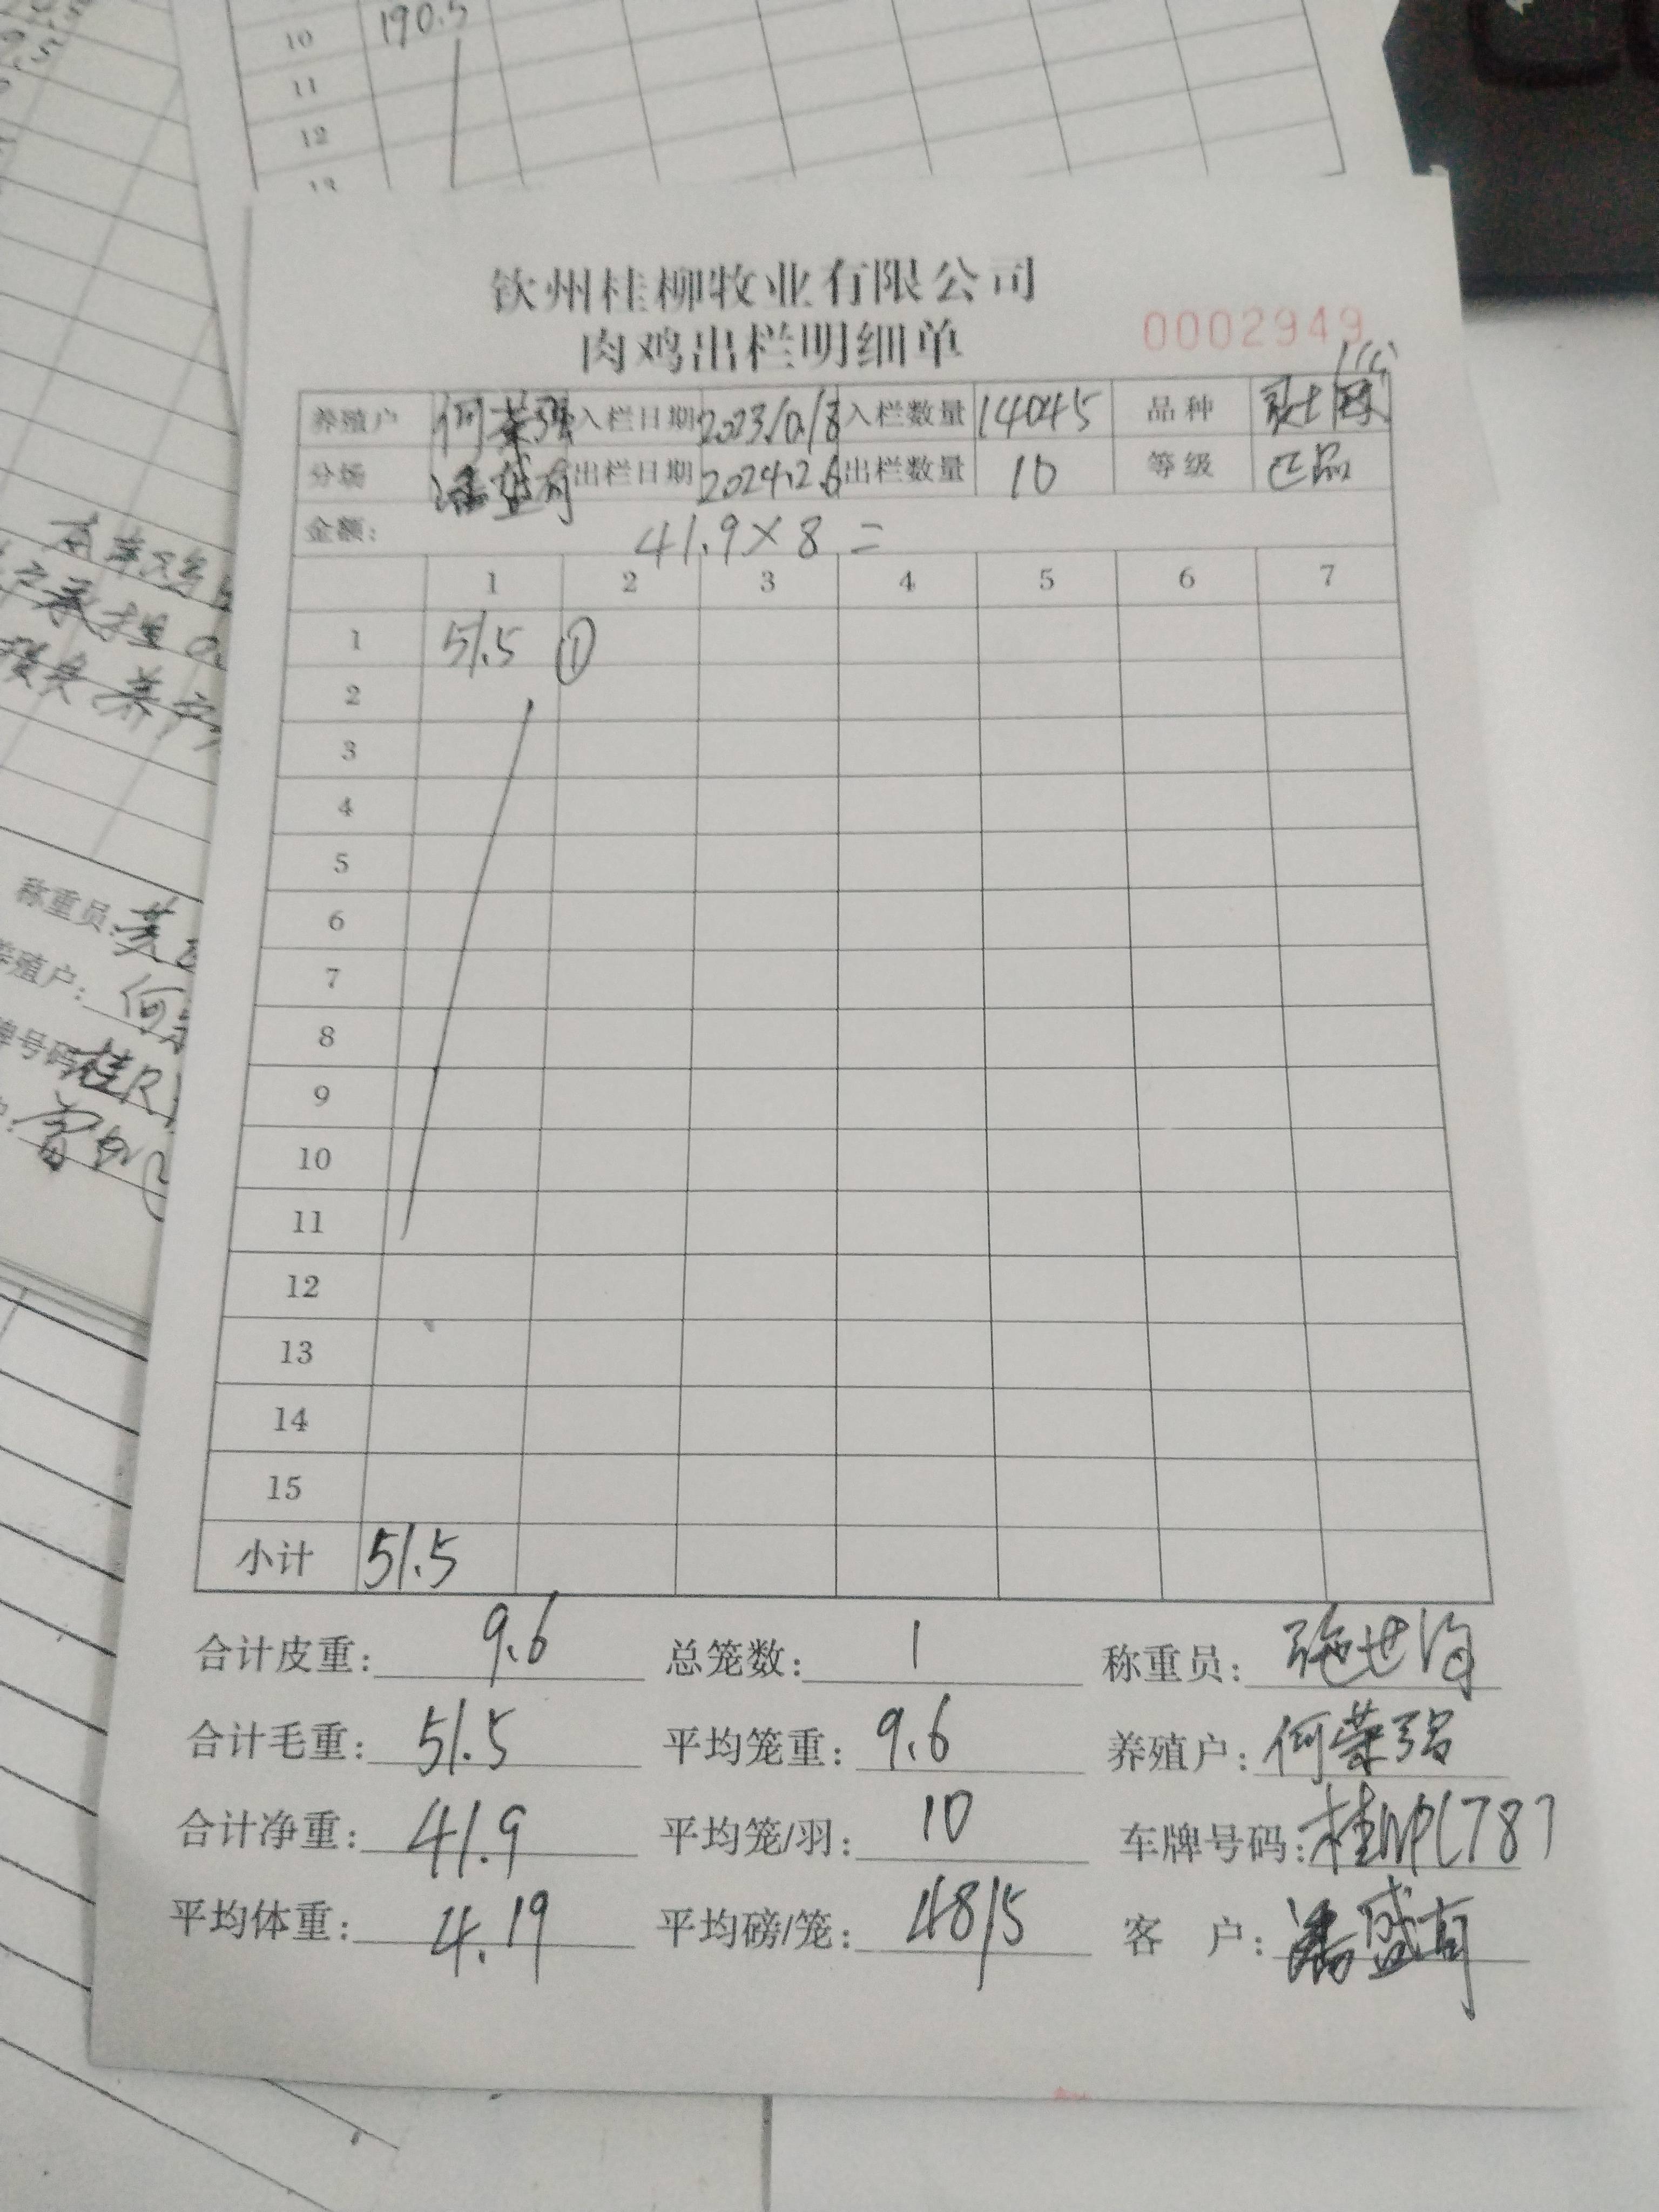 10 190.5
11
12
13
钦州桂柳牧业有限公司
肉鸡出栏明细单
0002949
养殖户 何荣强 入栏日期 2023/0/8 入栏数量 14045 品种
分场 潘盛有 出栏日期 2024.2.6 出栏数量 10 等级 正品
金额: 41.9×8=
1 2 3 4 5 6 7
1 51.5 ①
2
3
4
5
6
7
8
9
10
11
12
13
14
15
小计 51.5
合计皮重: 9.6 总笼数: 1 称重员:
合计毛重: 51.5 平均笼重: 9.6 养殖户: 何荣强
合计净重: 41.9 平均笼/羽: 10 车牌号码: 桂
平均体重: 4.19 平均磅/笼: 48/5 客 户: 潘盛有
户承担
损失 养户
称重员:
养殖户: 何
牌号码 桂R